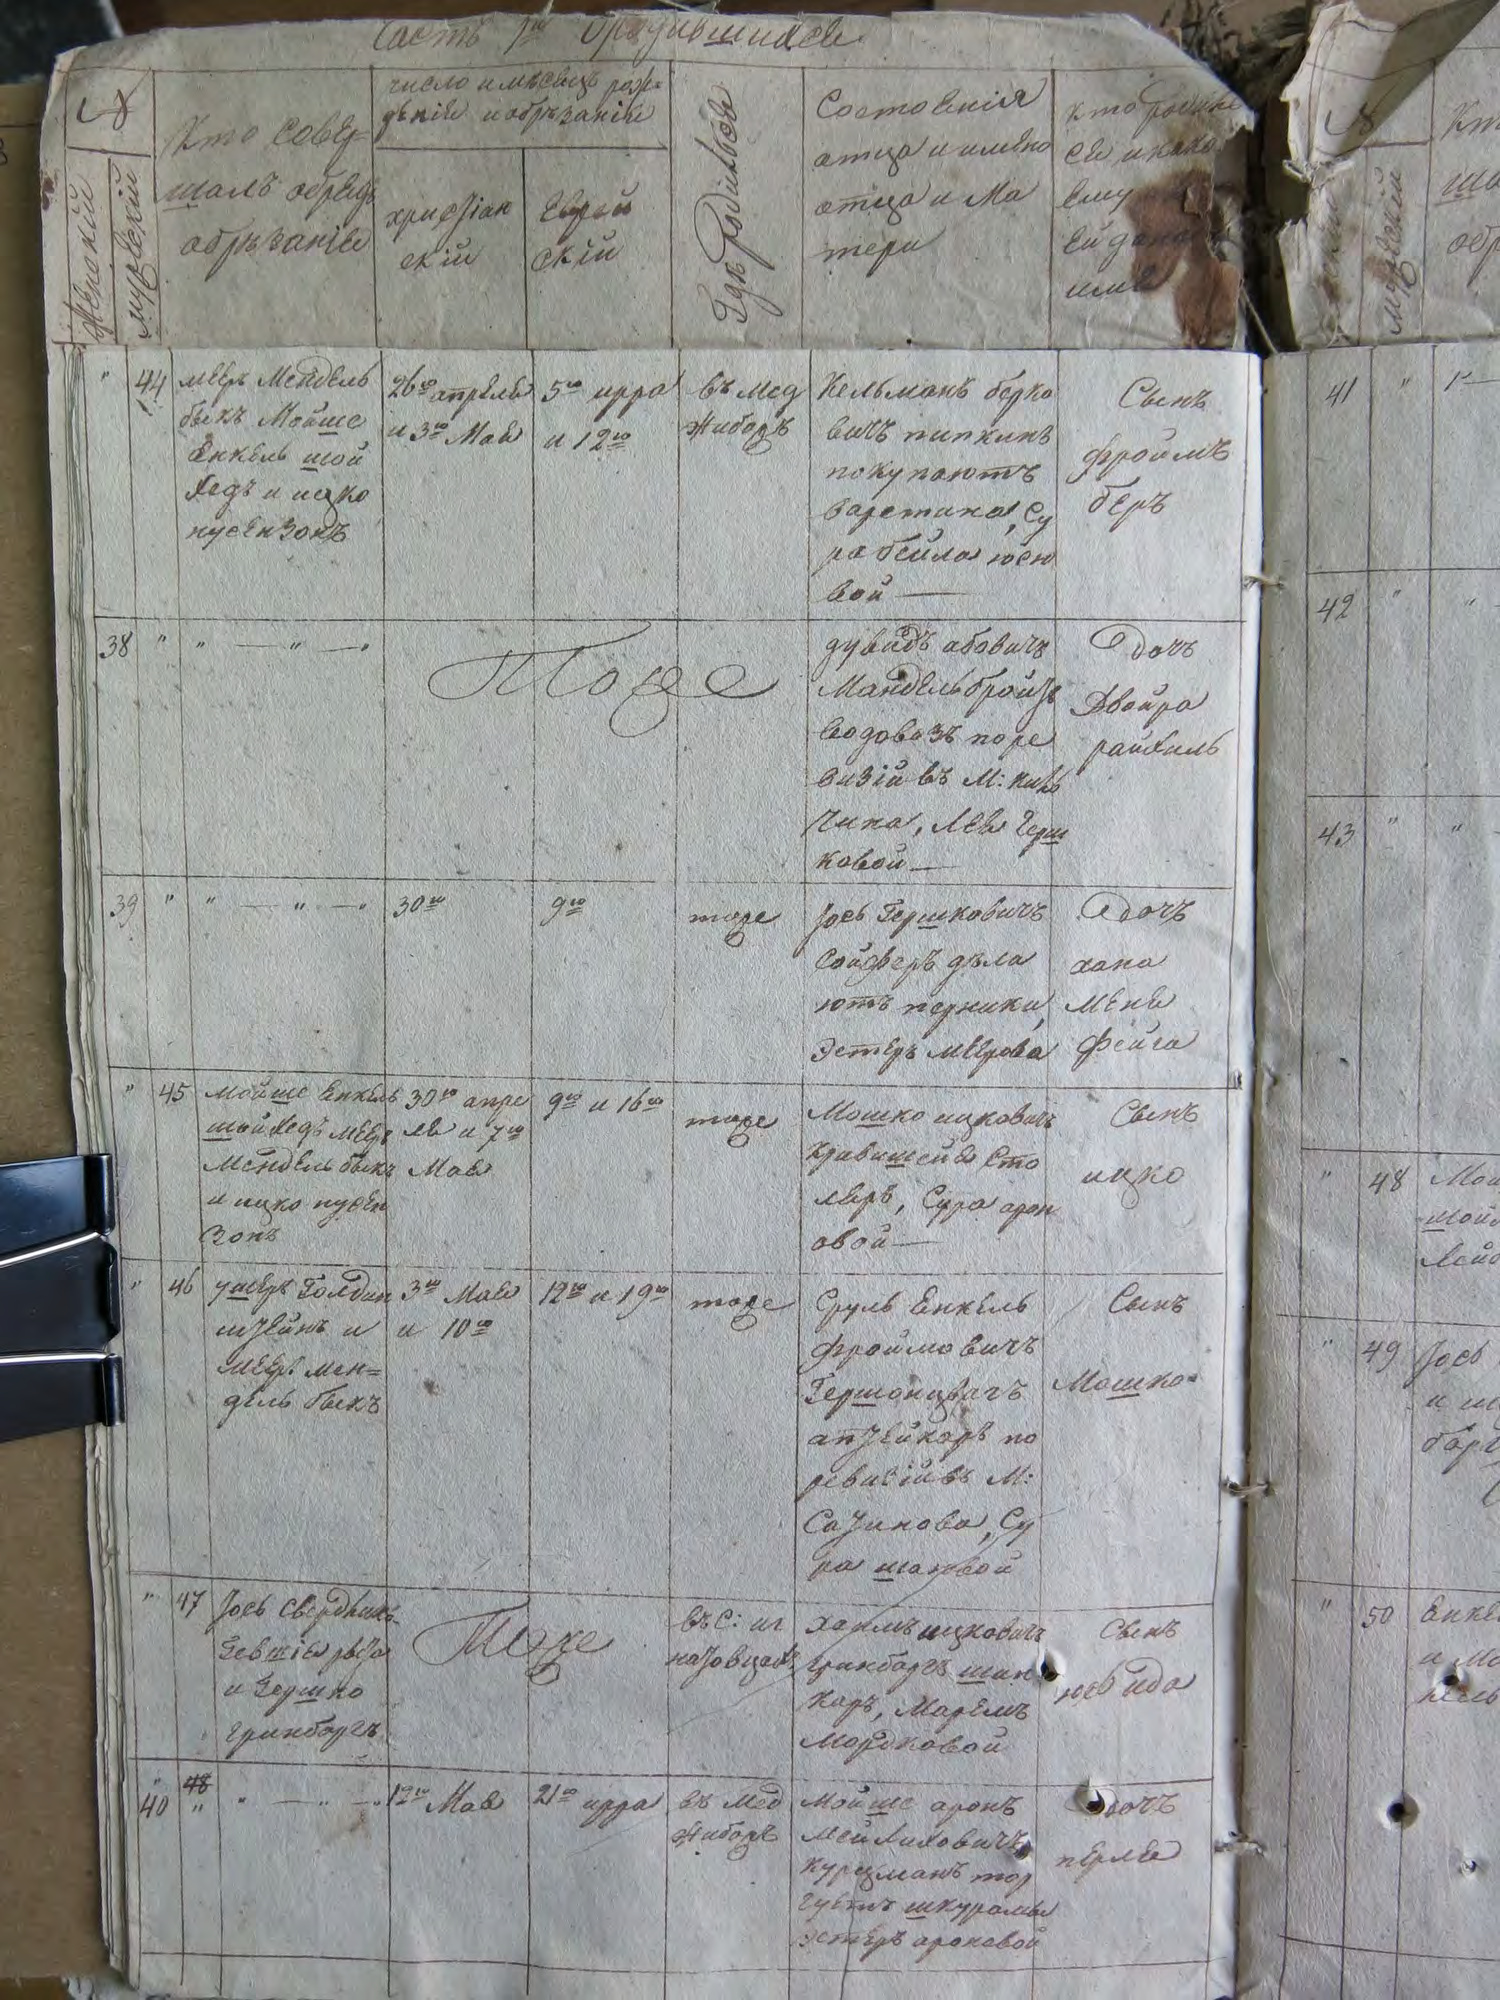 Часть 1я Ородившихсе
№
Женский
мужеский
Кто совер-
шалъ обредъ
обрезаніе
число и мѣсецъ рож-
дѣніе и обрѣзаніе
христіан
скій
Еврей
скій
Гдѣ родилъсе
Состоенія
отца и имена
отца и Ма
тери
кто родил
се и како
ему
ей дано
име
" 44
меер Мендель
быкъ Мойше
Енкель шой
хедъ и ицко
нусензонъ
26го апреле
и 3го Мае
5го ирра
и 12го
въ Мед
жибоже
Кельманъ берко
вичъ пипкинъ
покупаютъ
, Су
ра бейла юсю
вой —
Сынъ
фроимъ
беръ
38 " " — " — "
Тоже
дувидъ абовичъ
Мандельбройтъ
водовозъ поре
визій въ М:
, Лее герш
ковой —
дочъ
Двойра
райхиль
39 " " — " — "
30го
9го
тоже
Іось Гершковичъ
Сойферъ дѣла
ютъ перники,
Эстеръ меерова
дочъ
хана
Мене
фейга
" 45
Мойше Енкель
шойхедъ меер
Мендель быкъ
и ицко нусен
зонъ
30го апре
ле и 7го
Мае
9го и 16го
тоже
Мошко ицковичъ
Сто
леръ, Сура арон
овой —
Сынъ
ицко
" 46
ушеръ Голдин
штейнъ и
меер. мен=
дель быкъ
3го Мае
и 10го
12го и 19го
тоже
Сруль Енкель
фроимовичъ
аптейкаръ по
ревизій въ М:
Сатинова, Су
ра
Сынъ
Мошко
" 47
Іось
и Гершко
гринборгъ
Тоже
въ С: иг
натовцахъ
хаимъ ицковичъ
гринборгъ шин
каръ, Маремъ
Мордковой
Сынъ
40 48 " " — " — "
12го Мае
21го ирра
въ Мед
жибоже
Мойше аронъ
мейлиховичъ
курцманъ тор
гуетъ шкурами
эстеръ ароновой
дочъ
перле
№
мужеский
41 " 1
42 " "
43 " "
" 48
" 49 Іось
" 50 Енке